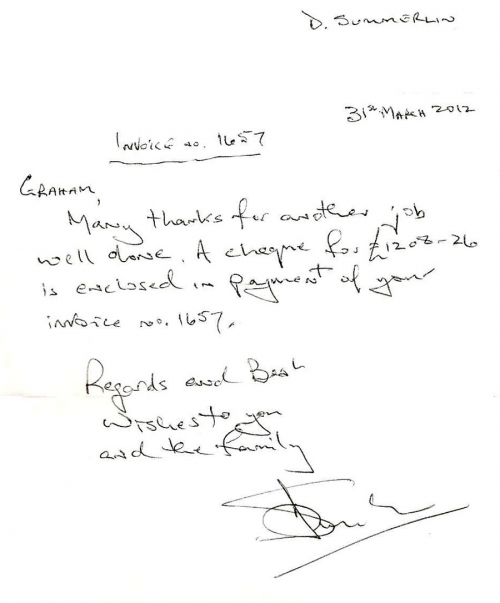 D. SUMMERLIN
31st MARCH 2012
INVOICE no. 1657
GRAHAM,
Many thanks for another job
well done. A cheque for £1208-26
is enclosed in payment of your
invoice no. 1657.
Regards and Best
wishes to you
and the family